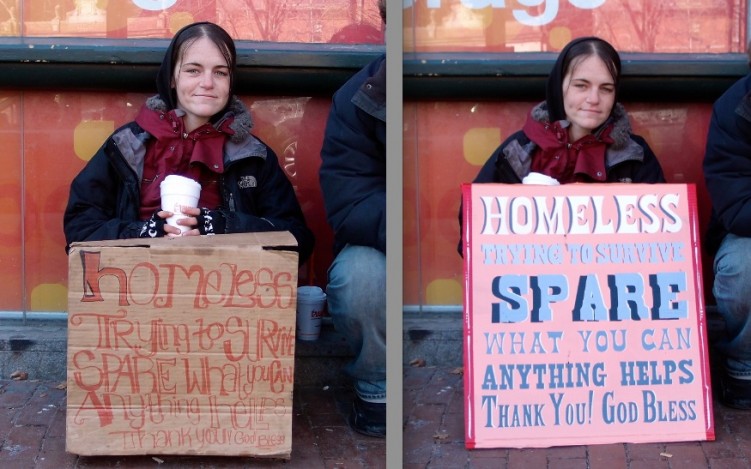 homeless
Trying to Survive
SPARE What you CAN
Anything Helps
Thank you! God Bless
HOMELESS
TRYING TO SURVIVE
SPARE
WHAT YOU CAN
ANYTHING HELPS
THANK YOU! GOD BLESS